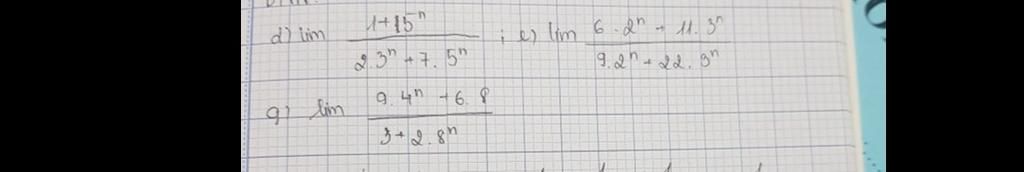 d) lim \frac{1+15^n}{2.3^n+7.5^n} ; e) lim \frac{6.2^n - 11.3^n}{9.2^n + 22.3^n}
g) lim \frac{9.4^n + 6.8}{3+2.8^n}